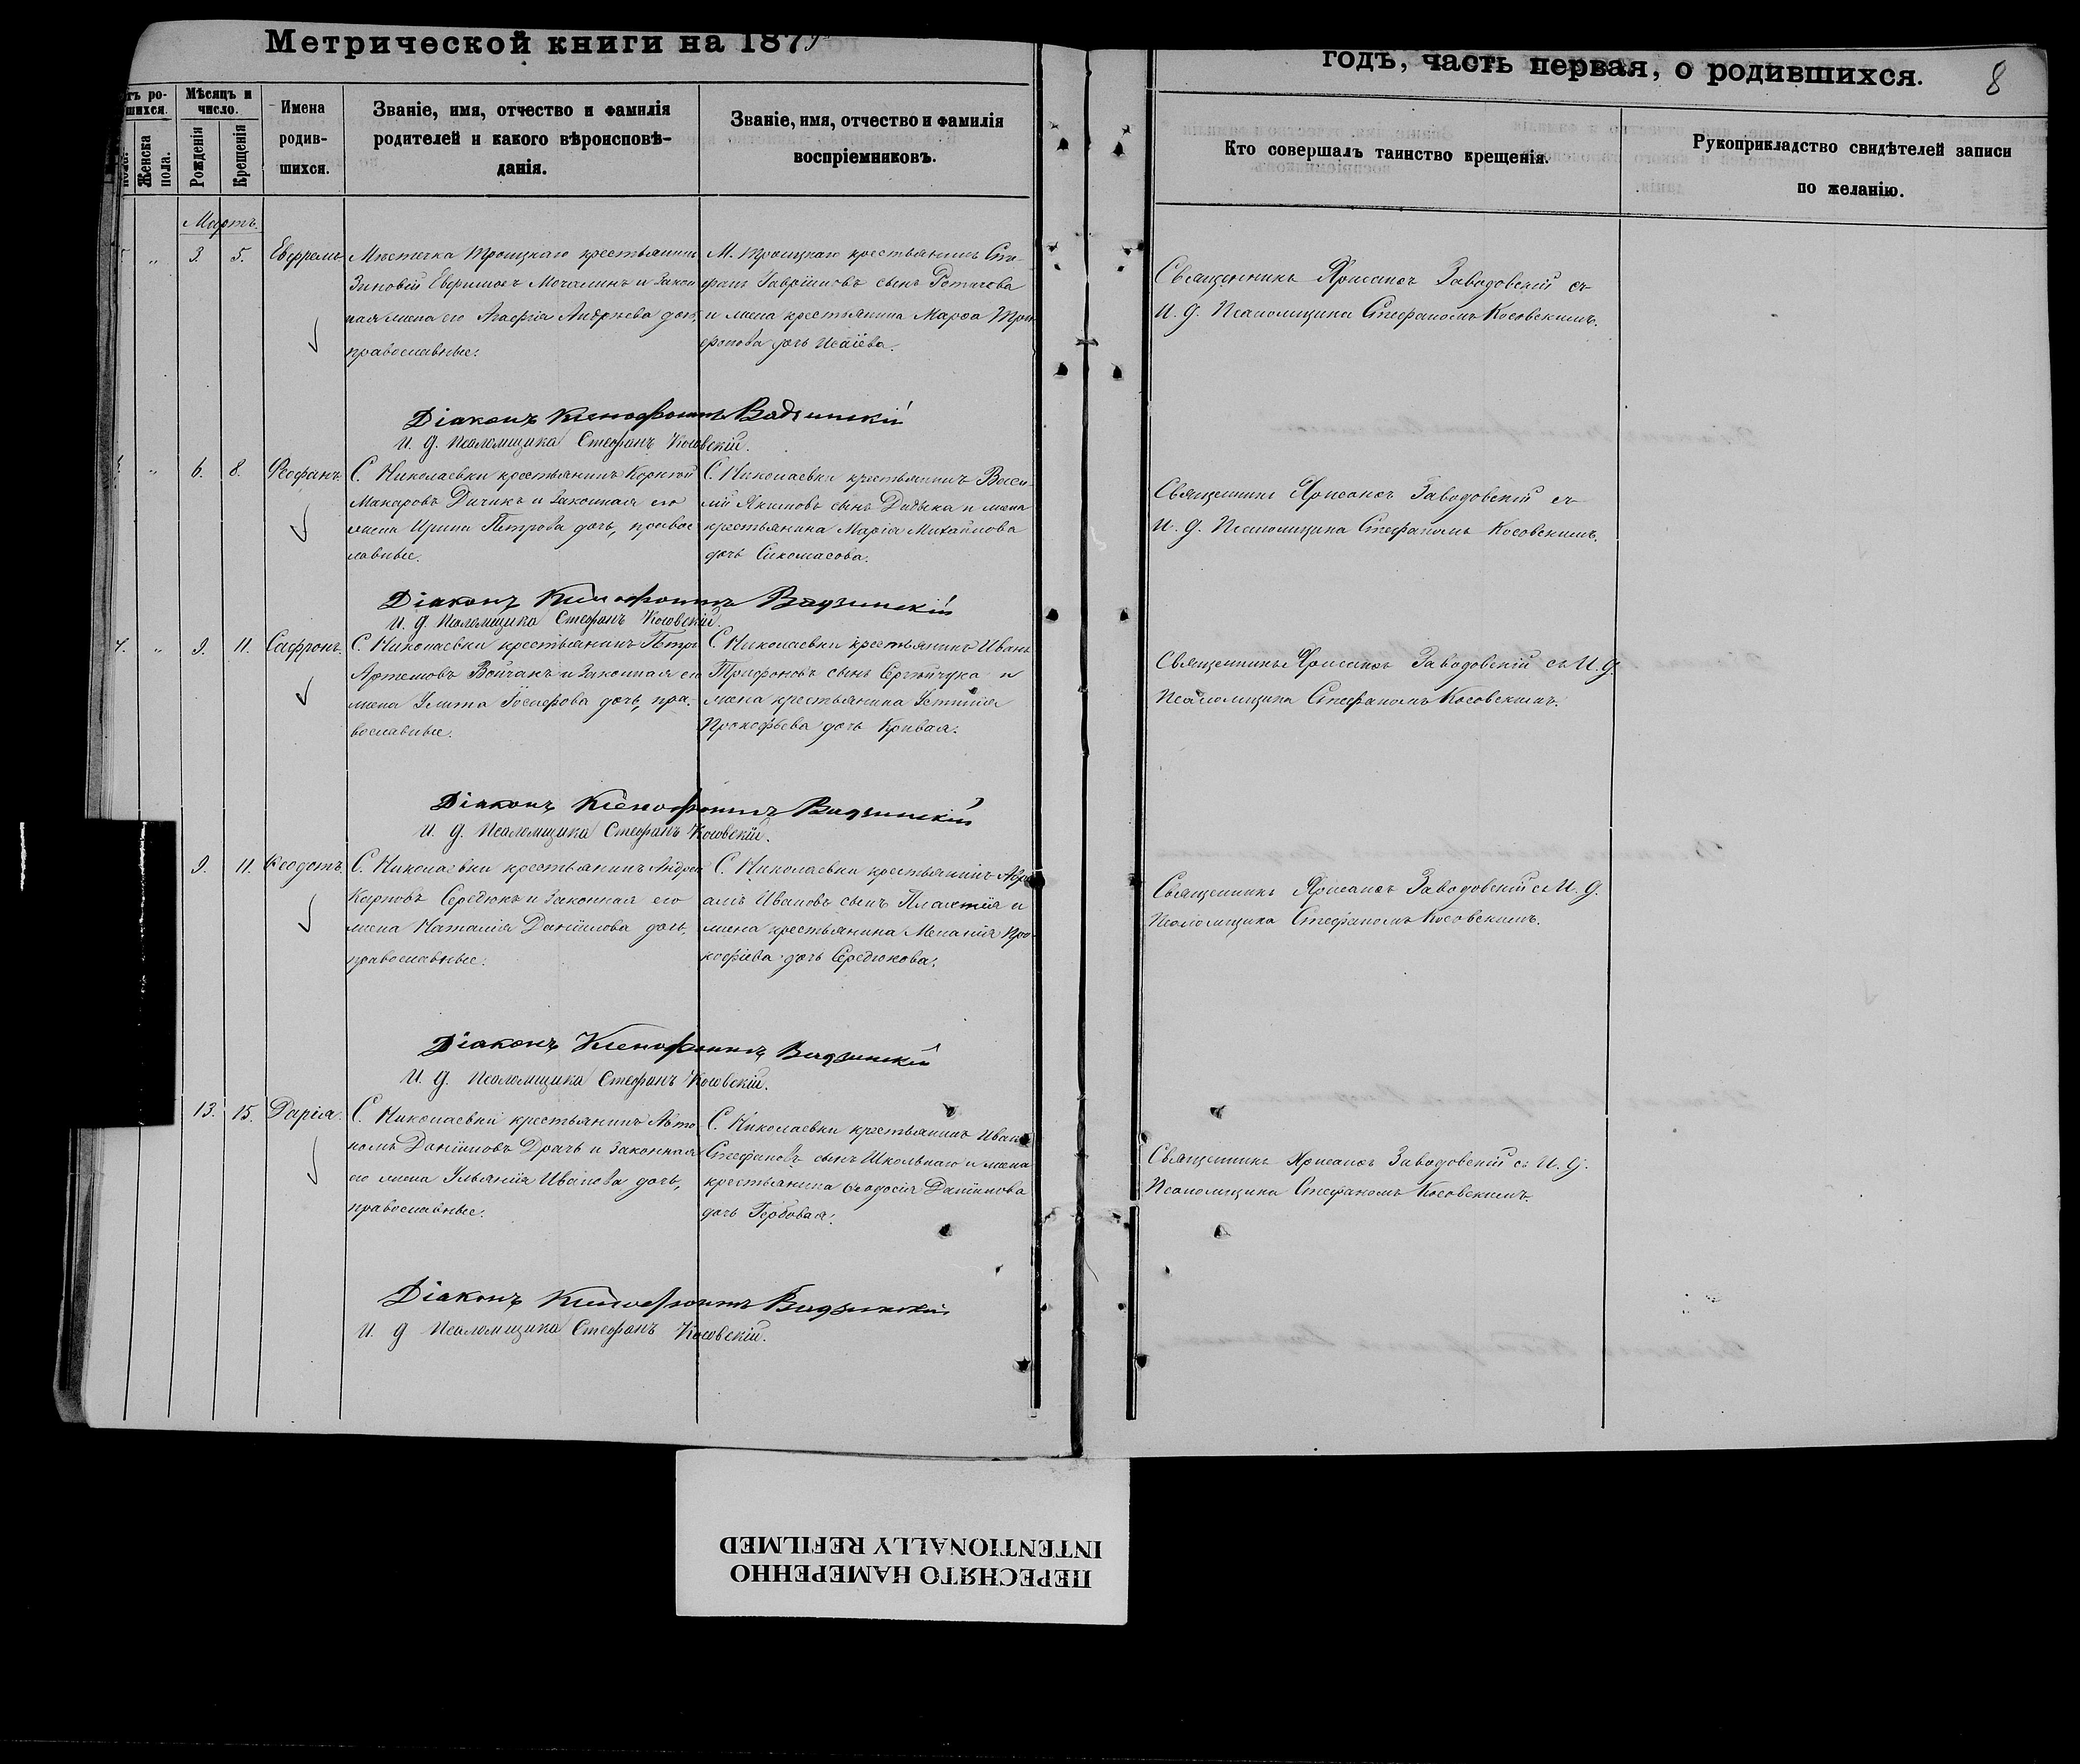 Метрической книги на 1879
годъ, часть первая, о родившихся.
8
Мѣсяцъ и
число.
Женска
пола.
Рожденія
Крещенія
Имена
родив-
шихся.
Званіе, имя, отчество и фамилія
родителей и какого вѣроисповѣ-
данія.
Званіе, имя, отчество и фамилія
воспріемниковъ.
Кто совершалъ таинство крещенія.
Рукоприкладство свидѣтелей записи
по желанію.
Мартъ.
3. 5. Ефремъ
Мѣстечка Троицкаго крестьянинъ
Зиновій Евфимовъ Мочалинъ и закон
ная жена его Агафія Андрѣева дочь,
православные.
М. Троицкаго крестьянинъ Сте-
фанъ Гавріиловъ сынъ
и жена крестьянина Марѳа Три-
фонова дочь Исаіева.
Священникъ Заводовскій съ
И. д. Псаломщика Стефаномъ Косовскимъ.
Діаконъ Ксенофонтъ Вадзинскій
И. д. Псаломщика Стефанъ Косовскій.
6. 8. Ѳеофанъ.
С. Николаевки крестьянинъ Корнілій
Макаровъ Дичикъ и законная его
жена Ирина Петрова дочь, правос
лавные.
С. Николаевки крестьянинъ Васи-
лій Якимовъ сынъ Дидыка и жена
крестьянина Марія Михайлова
дочь
Священникъ Заводовскій съ
И. д. Псаломщика Стефаномъ Косовскимъ.
Діаконъ Ксенофонтъ Вадзинскій
И. д. Псаломщика Стефанъ Косовскій.
7. " 9. 11. Сафронъ.
С. Николаевки крестьянинъ Петръ
Артемовъ Войчакъ и законная его
жена Улита Іосифова дочь, пра-
вославные.
С. Николаевки крестьянинъ Иванъ
Трифоновъ сынъ Сергійчука и
жена крестьянина Устинія
Прокофьева дочь Кривая.
Священникъ Заводовскій съ И. д.
Псаломщика Стефаномъ Косовскимъ.
Діаконъ Ксенофонтъ Вадзинскій
И. д. Псаломщика Стефанъ Косовскій.
9. 11. Ѳеодотъ.
С. Николаевки крестьянинъ Андрей
Карповъ Середюкъ и законная его
жена Наталія Даніилова дочь,
православные.
С. Николаевки крестьянинъ Авра
амъ Ивановъ сынъ Плахтія и
жена крестьянина Меланія Про-
кофіева дочь Середюкова.
Священникъ Заводовскій съ И. д.
Псаломщика Стефаномъ Косовскимъ.
Діаконъ Ксенофонтъ Вадзинскій
И. д. Псаломщика Стефанъ Косовскій.
13. 15. Дарія.
С. Николаевки крестьянинъ Авто
номъ Даніиловъ Драчъ и законная
его жена Ульянія Иванова дочь,
православные.
С. Николаевки крестьянинъ Иванъ
Стефановъ сынъ Школьнаго и жена
крестьянина Ѳеодосія Даніилова
дочь Гербовая.
Священникъ Заводовскій съ И. д.
Псаломщика Стефаномъ Косовскимъ.
Діаконъ Ксенофонтъ Вадзинскій
И. д Псаломщика Стефанъ Косовскій.
ПЕРЕСНЯТО НАМЕРЕННО
INTENTIONALLY REFILMED